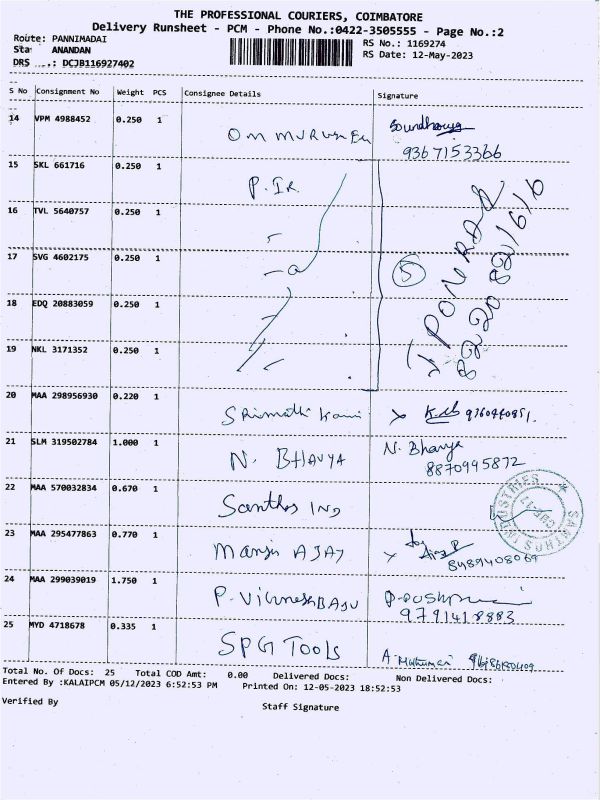 THE PROFESSIONAL COURIERS, COIMBATORE
Delivery Runsheet - PCM - Phone No.:0422-3505555 - Page No.:2
Route: PANNIMADAI
RS No.: 1169274
ANANDAN
RS Date: 12-May-2023
DRS .: DCJB116927402
S No Consignment No Weight PCS Consignee Details Signature
14 VPM 4988452 0.250 1 OM MURUGAN
9367153366
15 SKL 661716 0.250 1 P. IR
16 TVL 5640757 0.250 1
17 SVG 4602175 0.250 1
5 PONRAJ
8220821616
18 EDQ 20883059 0.250 1
19 NKL 3171352 0.250 1
20 MAA 298956930 0.220 1 Srimathi
21 SLM 319502784 1.000 1 N. BHAVYA N. Bhavya
8870995872
22 MAA 570032834 0.670 1 Santhos IND
SANTHOS INDUSTRIES
23 MAA 295477863 0.770 1 Manju AJAY
8489408069
24 MAA 299039019 1.750 1 P. P. PUSHPA
9791418883
25 MYD 4718678 0.335 1 SPG TOOLS
Total No. Of Docs: 25 Total COD Amt: 0.00 Delivered Docs: Non Delivered Docs:
Entered By :KALAIPCM 05/12/2023 6:52:53 PM Printed On: 12-05-2023 18:52:53
Verified By Staff Signature